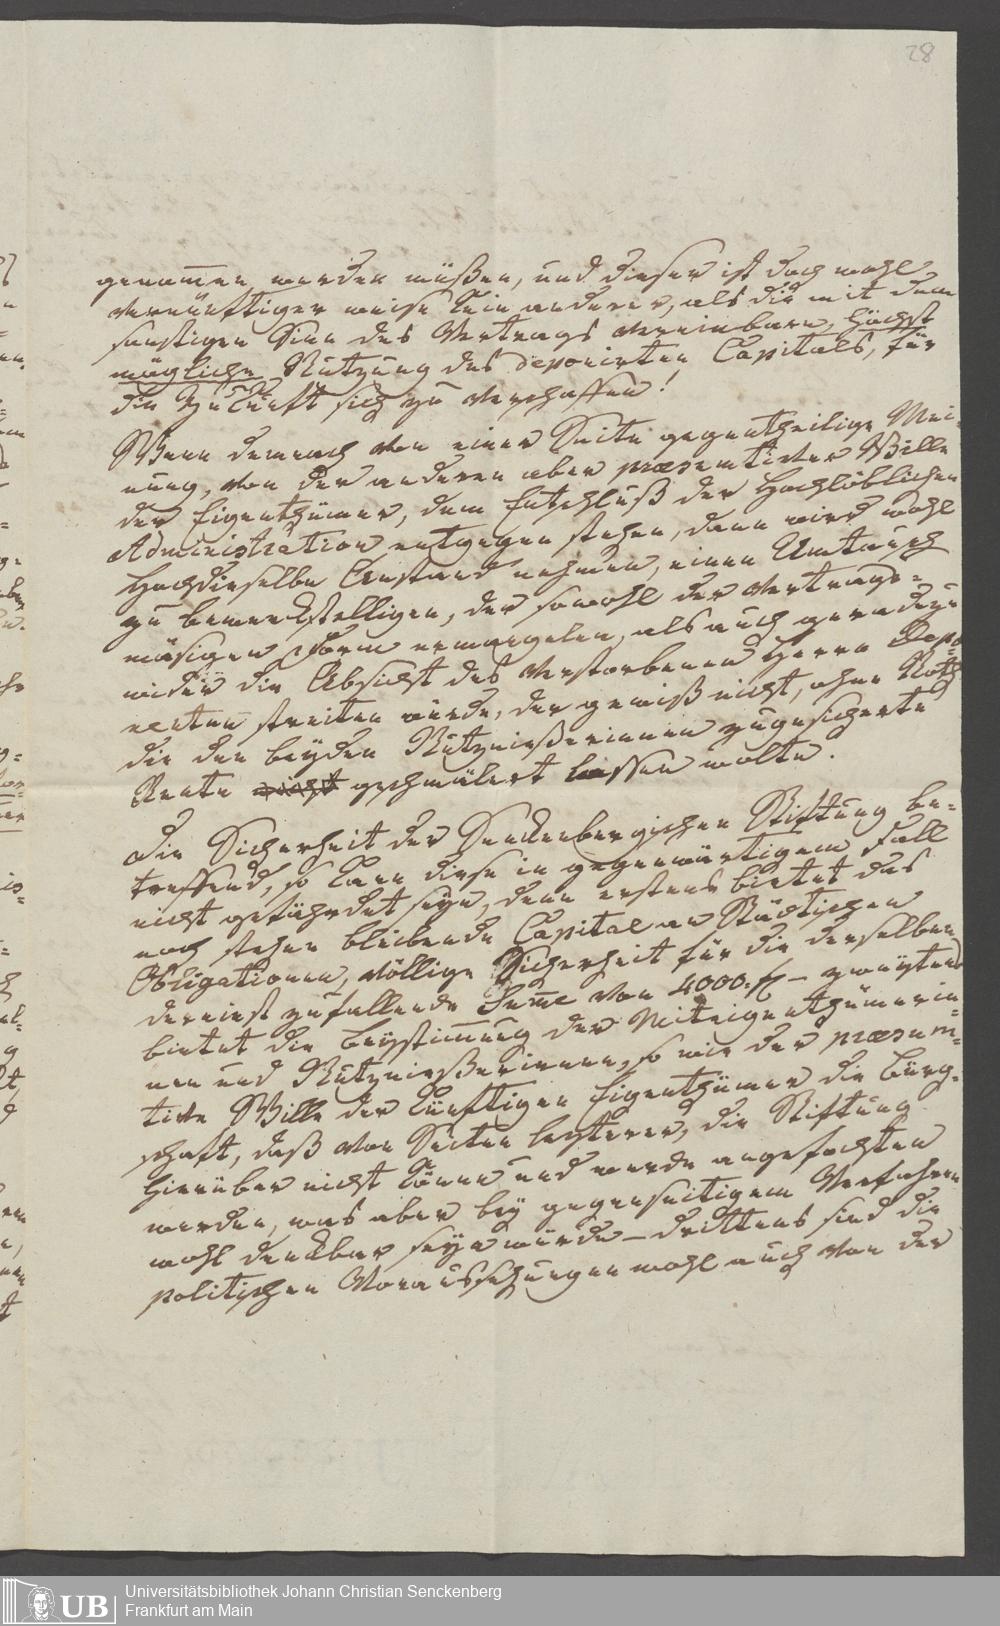 28
genom̅en werden müßen, und dieser ist doch wohl
vernünftiger weise kein anderer, als die mit dem
sonstigen Sinn des Vertrags vereinbare, höchst
mögliche Nutzung des deponirten Capitals, für
die Zukunft sich zu verschaffen!
Wenn demnach von einer Seite gegentheilige Mei-
nung, von der anderen aber præsumtiver Wille
der Eigenthümer, dem Entschluß der Hochlöblichen
Administration entgegen stehen, dann wird wohl
Hochdieselbe Anstand nehmen, einen Umtausch
zu bewerkstelligen, der sowohl der Vertrags-
mäsigen Form ermangelen, als auch geradezu
wider die Absicht des Verstorbenen Herrn Depo-
nenten streiten würde, der gewiß nicht, ohne Noth
die den beyden Nutznießerinnen zugesicherte
Rente nicht geschmälert lassen wolte.
Die Sicherheit der Senckenbergischen Stiftung be-
treffend, so kann diese in gegenwärtigem Fall
nicht gefährdet seyn, denn erstens bietet das
noch stehen bleibende Capital an Städtischen
Obligationen, völlige Sicherheit für die derselben
dereinst zufallende Sum̅e von 4000. fl – zweytens
bietet die Beystim̅ung der Miteigenthümerin-
nen und Nutznießerinnen, so wie der præsum-
tive Wille der künftigen Eigenthümer die Bürg-
schaft, daß von Seiten letzterer, die Stiftung
hierüber nicht könne und werde angefochten
werden, was aber bey gegenseitigem Verfahren
wohl denkbar seyn würde – drittens sind die
politischen Voraussetzungen wohl auch von der
UB
Universitätsbibliothek Johann Christian Senckenberg
Frankfurt am Main